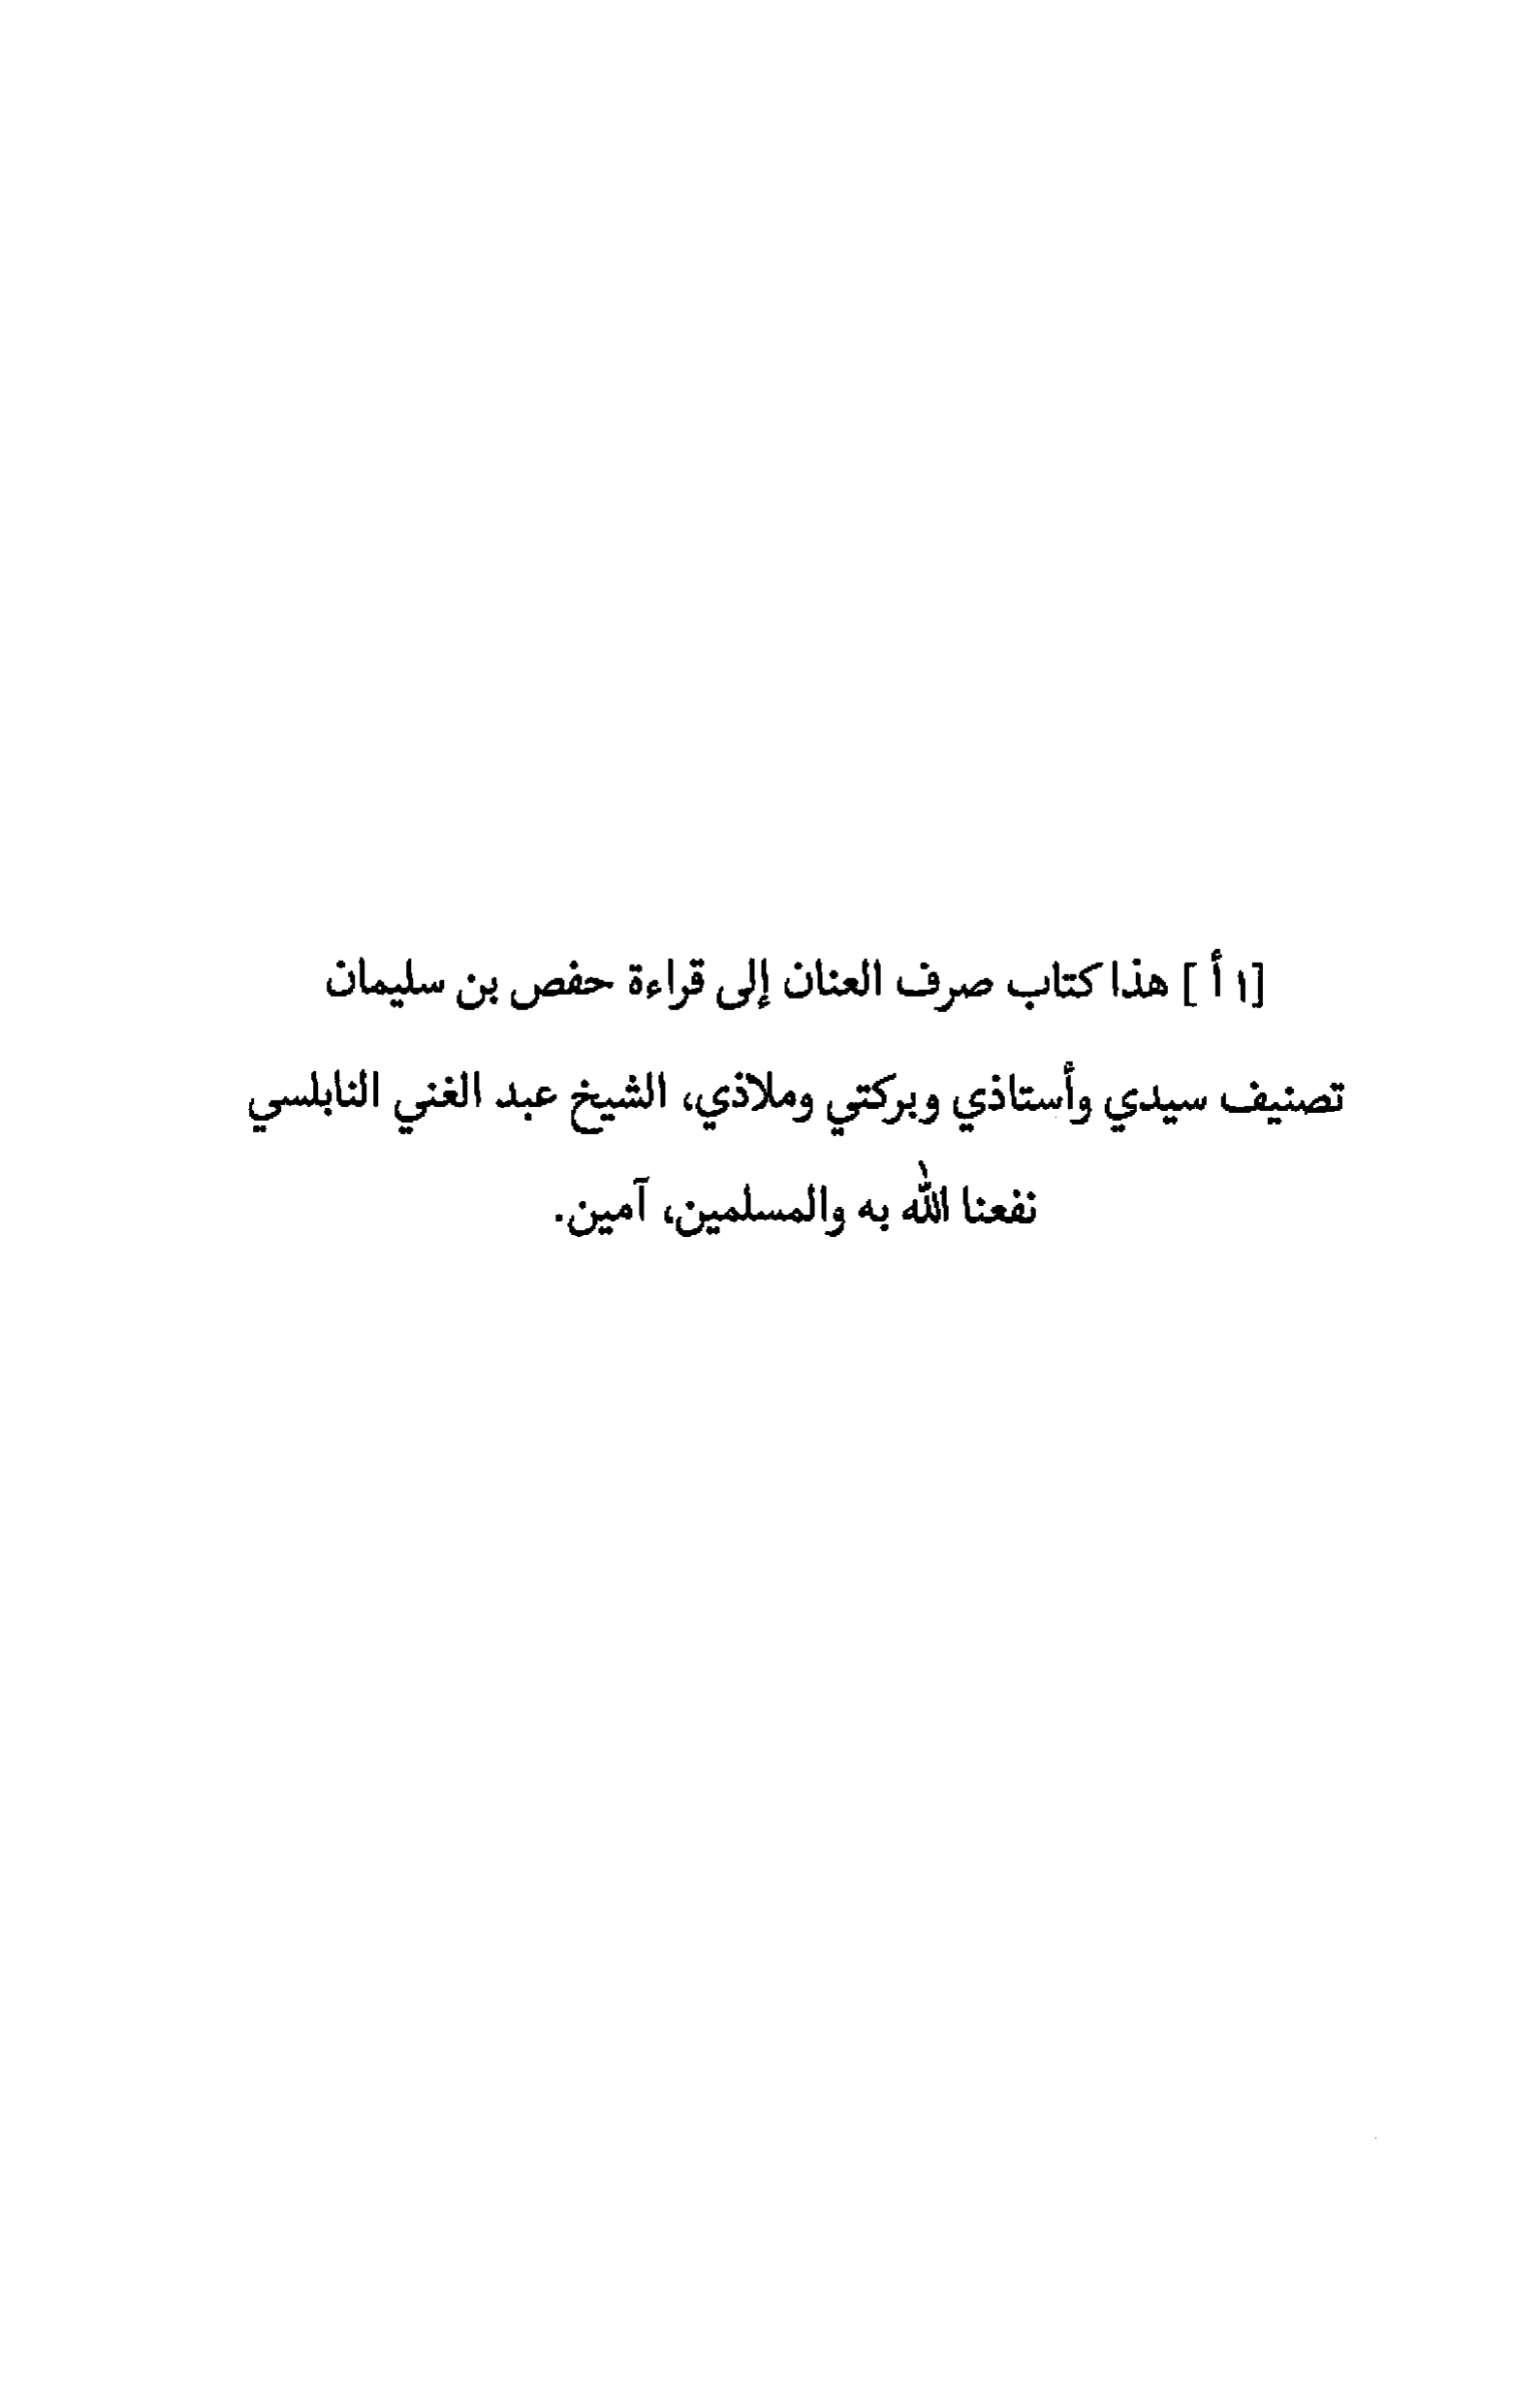 [١ أ ] هذا كتاب صرف العنان إلى قراءة حفص بن سليمان
تصنيف سيدي وأستاذي وبركتي وملاذي، الشيخ عبد الغني النابلسي
نفعنا الله به والمسلمين، آمين.